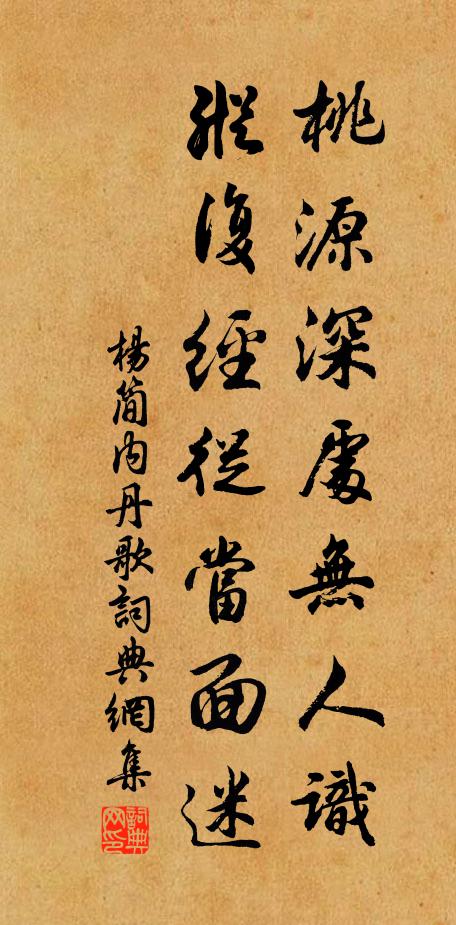 桃源深處無人識
縱復經從當面迷
楊簡內丹歌詞典網集
詞典
网印